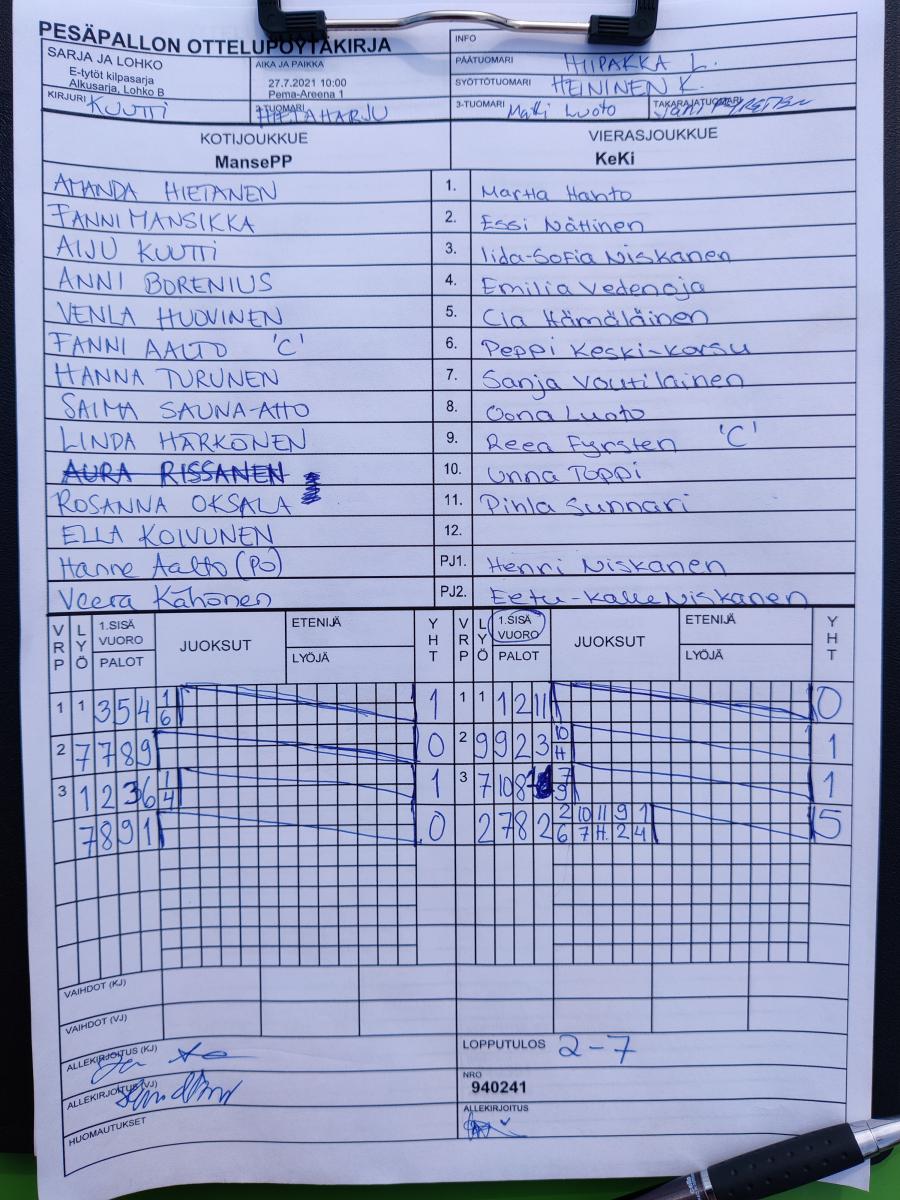 PESÄPALLON OTTELUPÖYTÄKIRJA
SARJA JA LOHKO
E-tytöt kilpasarja
Alkusarja, Lohko B
AIKA JA PAIKKA
27.7.2021 10:00
Pema-Areena 1
INFO
PÄÄTUOMARI HIIPAKKA L.
SYÖTTÖTUOMARI HEININEN K.
KIRJURI KUUTTI
2-TUOMARI HIETAHARJU
3-TUOMARI Matti Luoto
TAKARAJATUOMARI
KOTIJOUKKUE
MansePP
VIERASJOUKKUE
KeKi
AMANDA HIETANEN 1. Martta Hanto
FANNI MANSIKKA 2. Essi Nättinen
AIJU KUUTTI 3. Iida-Sofia Niskanen
ANNI BORENIUS 4. Emilia Vedenoja
VENLA HUOVINEN 5. Cia Hämäläinen
FANNI AALTO 'C' 6. Peppi Keski-Korsu
HANNA TURUNEN 7. Sanja Voutilainen
SAIMA SAUNA-AHO 8. Oona Luoto
LINDA HÄRKÖNEN 9. Reea Fyrsten 'C'
AURA RISSANEN 10. Unna Toppi
ROSANNA OKSALA 11. Pihla Sunnari
ELLA KOIVUNEN 12.
Hanne Aalto (PO) PJ1. Henri Niskanen
Veera Kähönen PJ2. Eetu-Kalle Niskanen
VRP LYÖ 1.SISÄ VUORO PALOT JUOKSUT ETENIJÄ LYÖJÄ YHT VRP LYÖ 1.SISÄ VUORO PALOT JUOKSUT ETENIJÄ LYÖJÄ YHT
1 1 3 5 4 1 6 1 1 1 1 2 11 0
2 7 7 8 9 0 2 9 9 2 3 10 H 1
3 1 2 3 6 1 4 1 3 7 10 8 7 9 1
7 8 9 1 0 2 7 8 2 2 10 11 9 1 5
6 7 H. 2 4
VAIHDOT (KJ)
VAIHDOT (VJ)
ALLEKIRJOITUS (KJ)
LOPPUTULOS 2-7
ALLEKIRJOITUS (VJ)
NRO
940241
HUOMAUTUKSET
ALLEKIRJOITUS